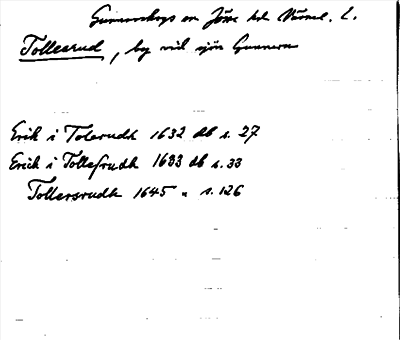 Gunnarskogs sn Jösse hd Värml. L.
Tollesrud, by vid sjön Gunnern
Erik i Tolerudh 1632 db s. 27
Erich i Tollefrudh 1633 db s. 33
Tollersrudh 1645 " s. 126